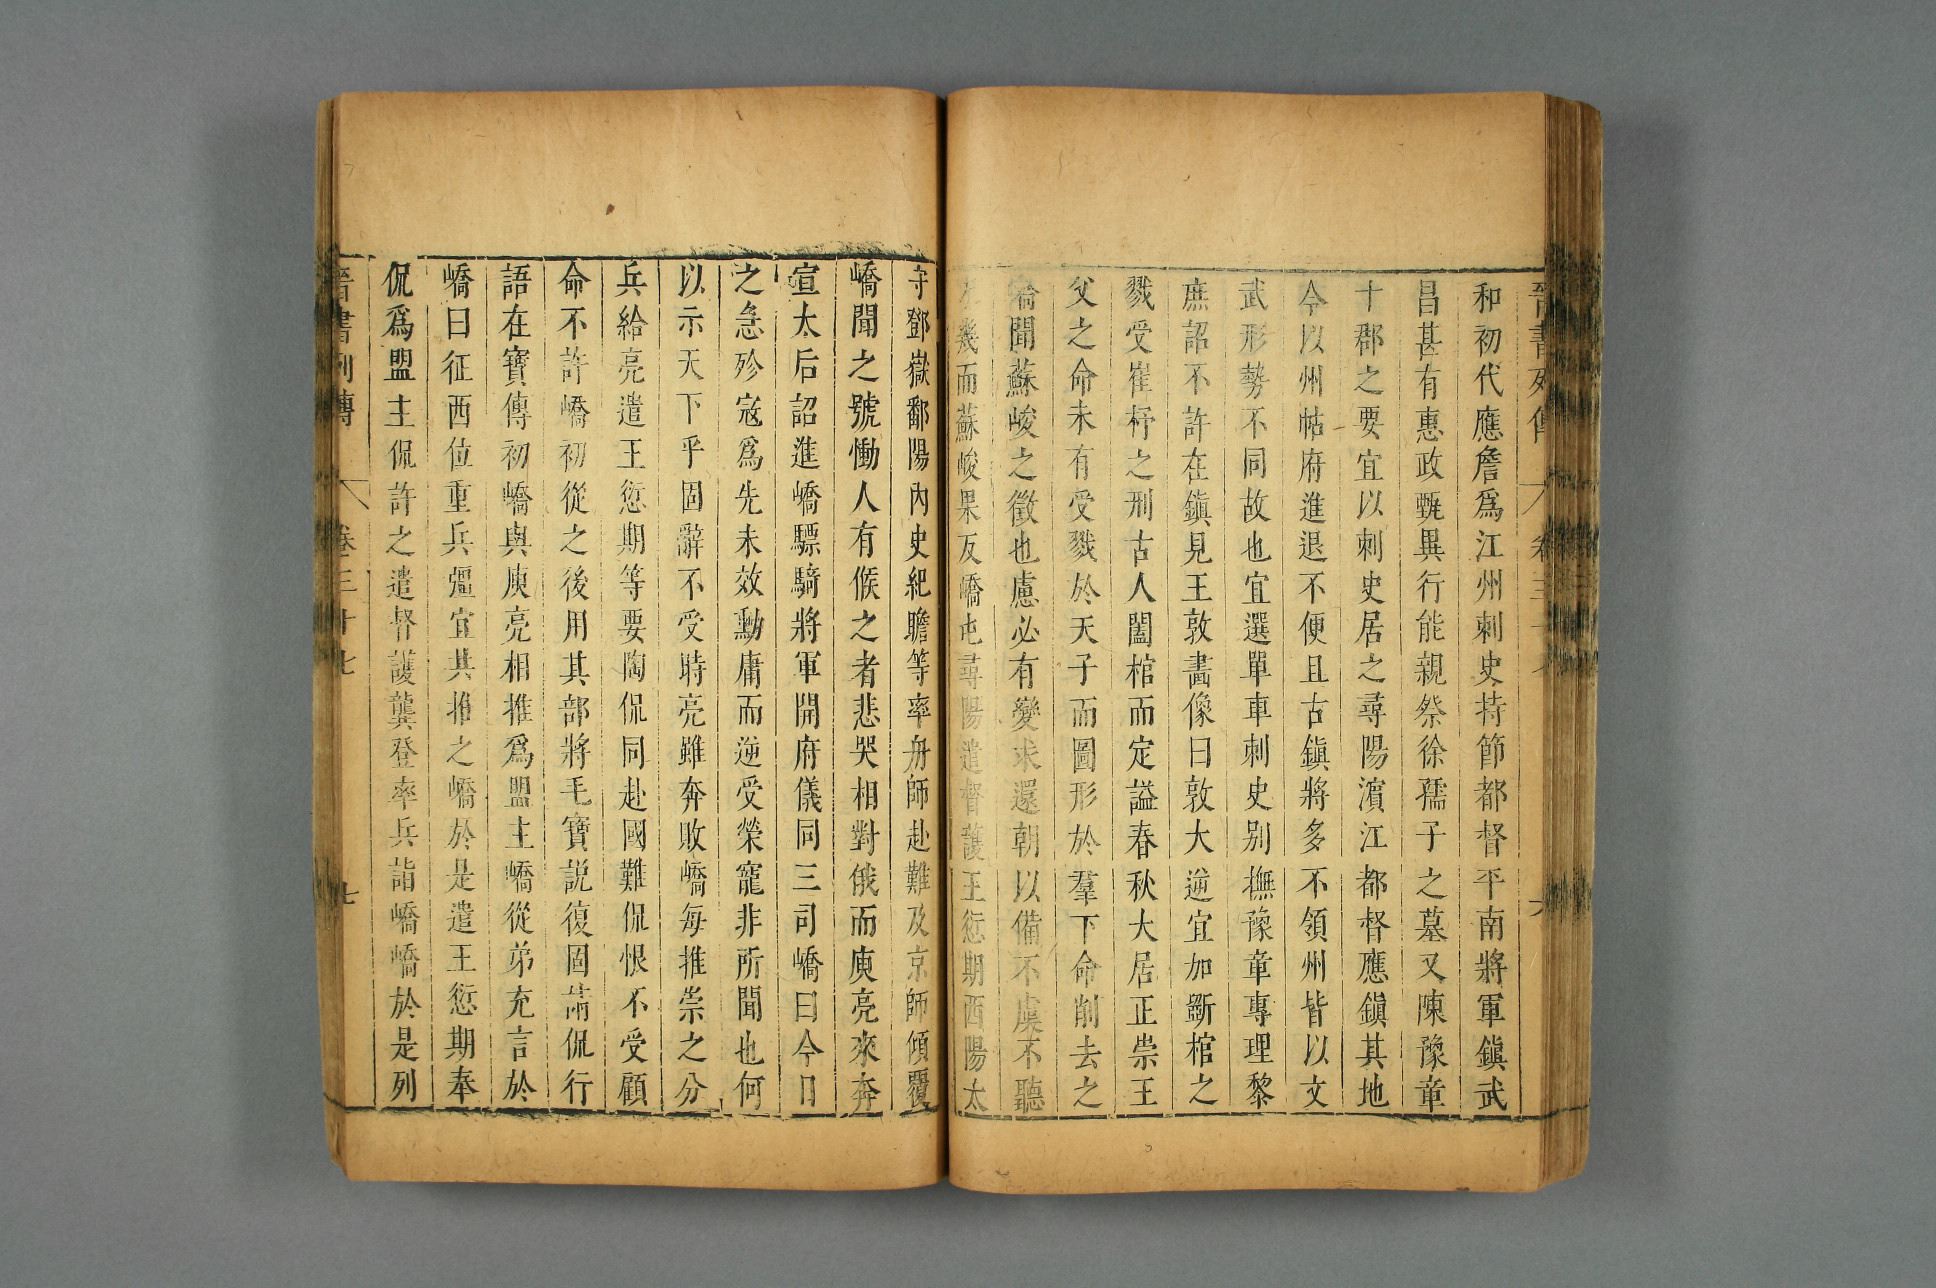 晉書列傳 卷三十七 六
和初代應詹爲江州刺史持節都督平南將軍鎭武
昌甚有惠政甄異行能親祭徐孺子之墓又陳豫章
十郡之要宜以刺史居之尋陽濱江都督應鎭其地
今以州帖府進退不便且古鎭將多不領州皆以文
武形勢不同故也宜選單車刺史别撫豫章專理黎
庶詔不許在鎭見王敦畵像曰敦大逆宜加斵棺之
戮受崔杼之刑古人闔棺而定謚春秋大居正崇王
父之命未有受戮於天子而圖形於羣下命削去之
嶠聞蘇峻之徵也慮必有變求還朝以備不虞不聽
未幾而蘇峻果反嶠屯尋陽遣督護王愆期西陽太
守鄧嶽鄱陽內史紀瞻等率舟師赴難及京師傾覆
嶠聞之號慟人有候之者悲哭相對俄而庾亮來奔
宣太后詔進嶠驃騎將軍開府儀同三司嶠曰今日
之急殄寇爲先未效勳庸而逆受榮寵非所聞也何
以示天下乎固辭不受時亮雖奔敗嶠每推崇之分
兵給亮遣王愆期等要陶侃同赴國難侃恨不受顧
命不許嶠初從之後用其部將毛寶説復固請侃行
語在寶傳初嶠與庾亮相推爲盟主嶠從弟充言於
嶠曰征西位重兵彊宜共推之嶠於是遣王愆期奉
侃爲盟主侃許之遣督護龔登率兵詣嶠嶠於是列
晉書列傳 卷三十七 七